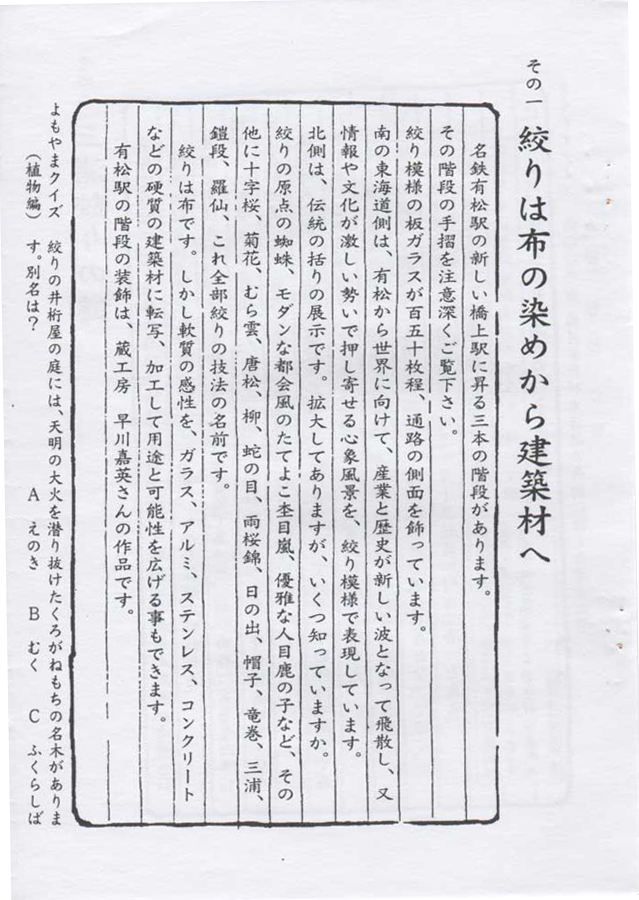 その一　絞りは布の染めから建築材へ
名鉄有松駅の新しい橋上駅に昇る三本の階段があります。
その階段の手摺を注意深くご覧下さい。
絞り模様の板ガラスが百五十枚程、通路の側面を飾っています。
南の東海道側は、有松から世界に向けて、産業と歴史が新しい波となって飛散し、又
情報や文化が激しい勢いで押し寄せる心象風景を、絞り模様で表現しています。
北側は、伝統の括りの展示です。拡大してありますが、いくつ知っていますか。
絞りの原点の蜘蛛、モダンな都会風のたてよこ杢目嵐、優雅な人目鹿の子など、その
他に十字桜、菊花、むら雲、唐松、柳、蛇の目、雨桜錦、日の出、帽子、竜巻、三浦、
鎧段、羅仙、これ全部絞りの技法の名前です。
絞りは布です。しかし軟質の感性を、ガラス、アルミ、ステンレス、コンクリート
などの硬質の建築材に転写、加工して用途と可能性を広げる事もできます。
有松駅の階段の装飾は、蔵工房　早川嘉英さんの作品です。
よもやまクイズ　絞りの井桁屋の庭には、天明の大火を潜り抜けたくろがねもちの名木がありま
（植物編）　す。別名は？　A　えのき　B　むく　C　ふくらしば